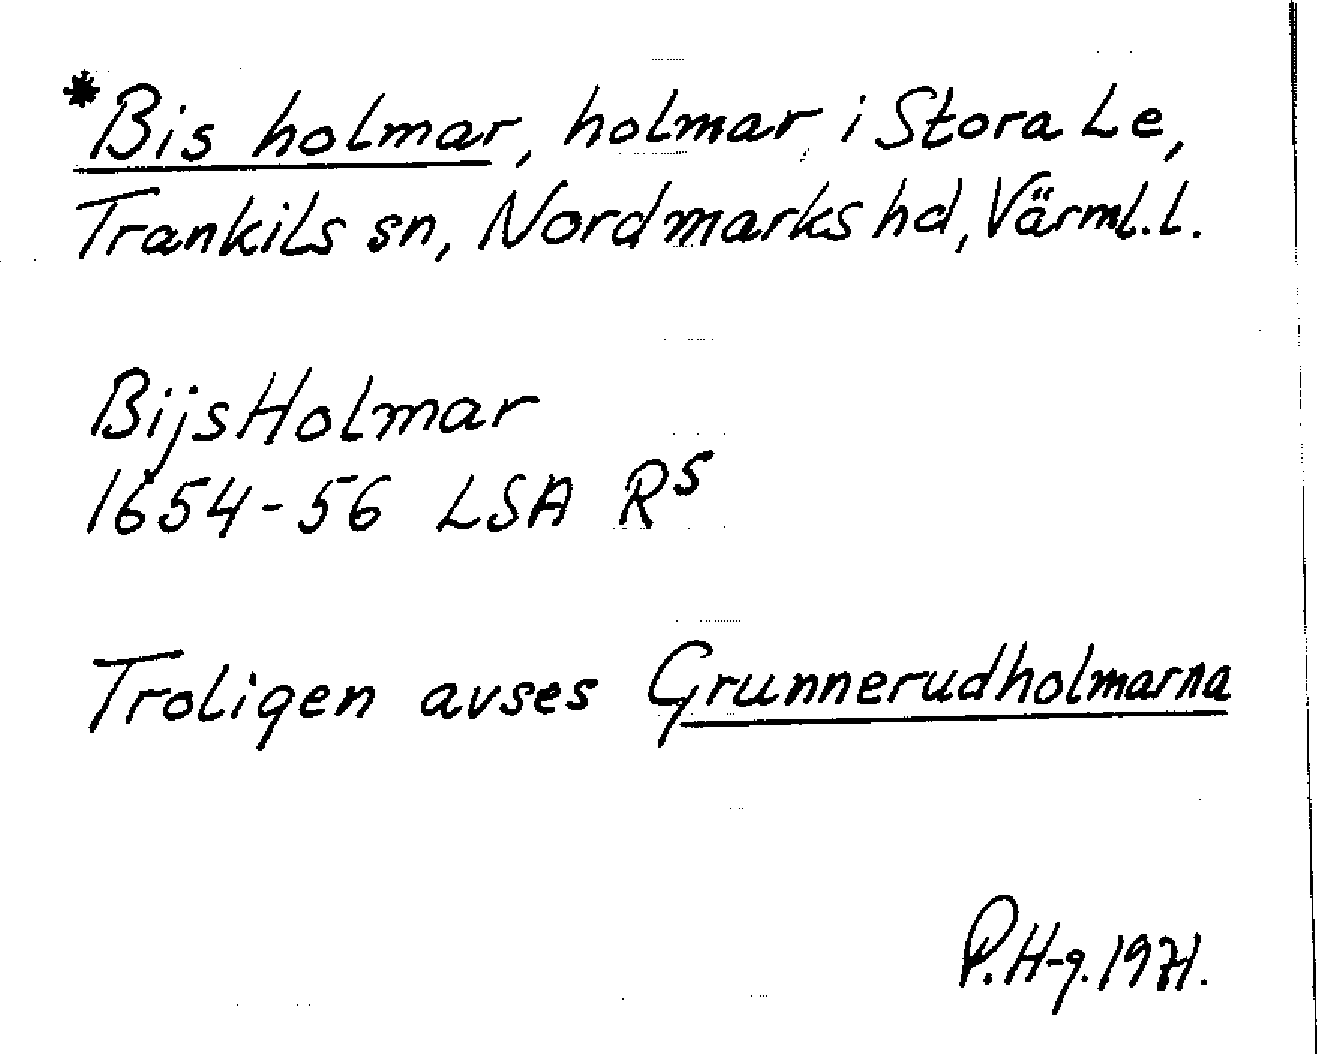 *Bis holmar, holmar i Stora Le,
Trankils sn, Nordmarks hd, Värml.l.
BijsHolmar
1654-56 LSA R⁵
Troligen avses Grunnerudholmarna
P.H-g.1971.